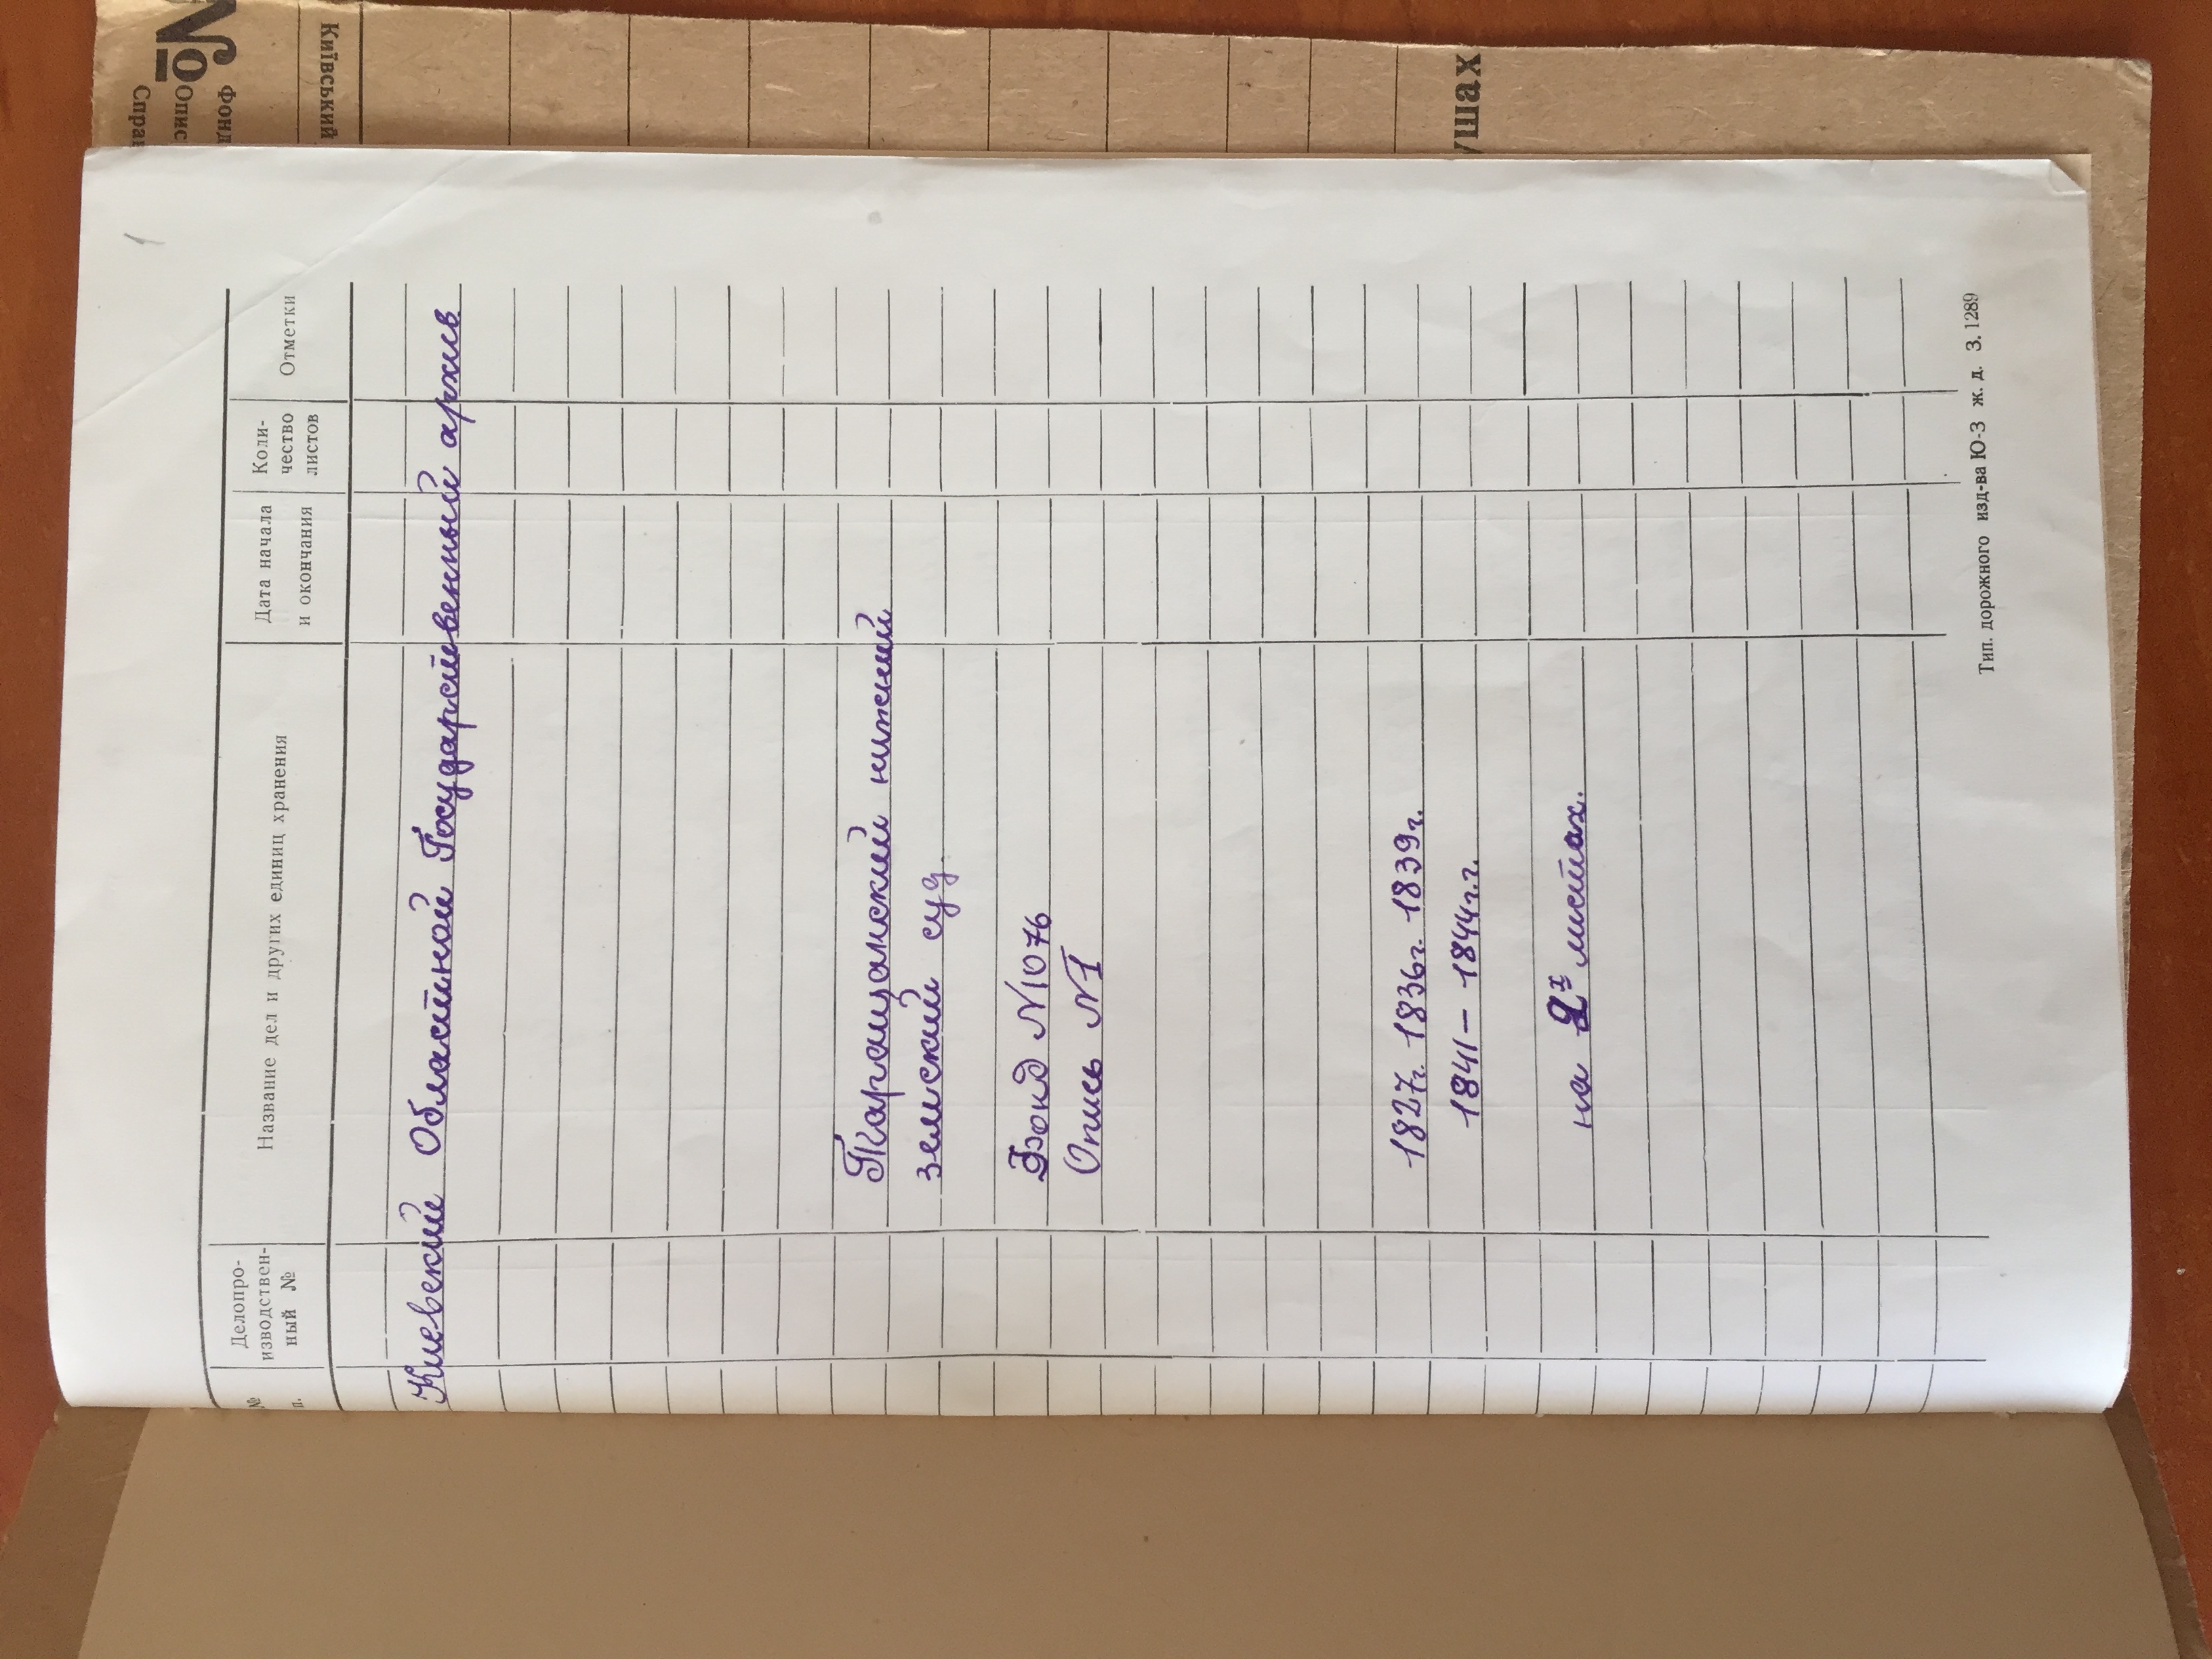 №
Фонд
Опис
Київський
1
№
п.
Делопро-
изводствен-
ный №
Название дел и других единиц хранения
Дата начала
и окончания
Коли-
чество
листов
Отметки
Киевский Областной Государственный архив
Таращанский нижний
земский суд
Фонд №1076
Опись №1
1827г. 1836г. 1839г.
1841 – 1844г.г.
на 2х листах.
Тип. дорожного изд-ва Ю-З ж. д. З. 1289